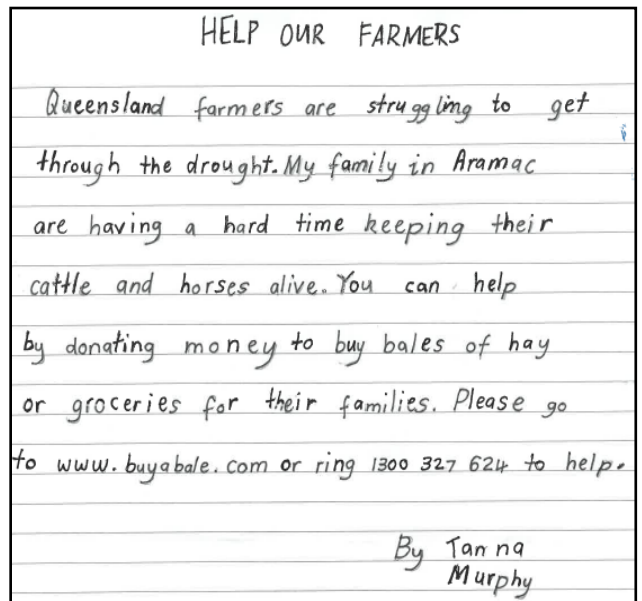 HELP OUR FARMERS
Queensland farmers are struggling to get
through the drought. My family in Aramac
are having a hard time keeping their
cattle and horses alive. You can help
by donating money to buy bales of hay
or groceries for their families. Please go
to www.buyabale.com or ring 1300 327 624 to help.
By Tanna
Murphy